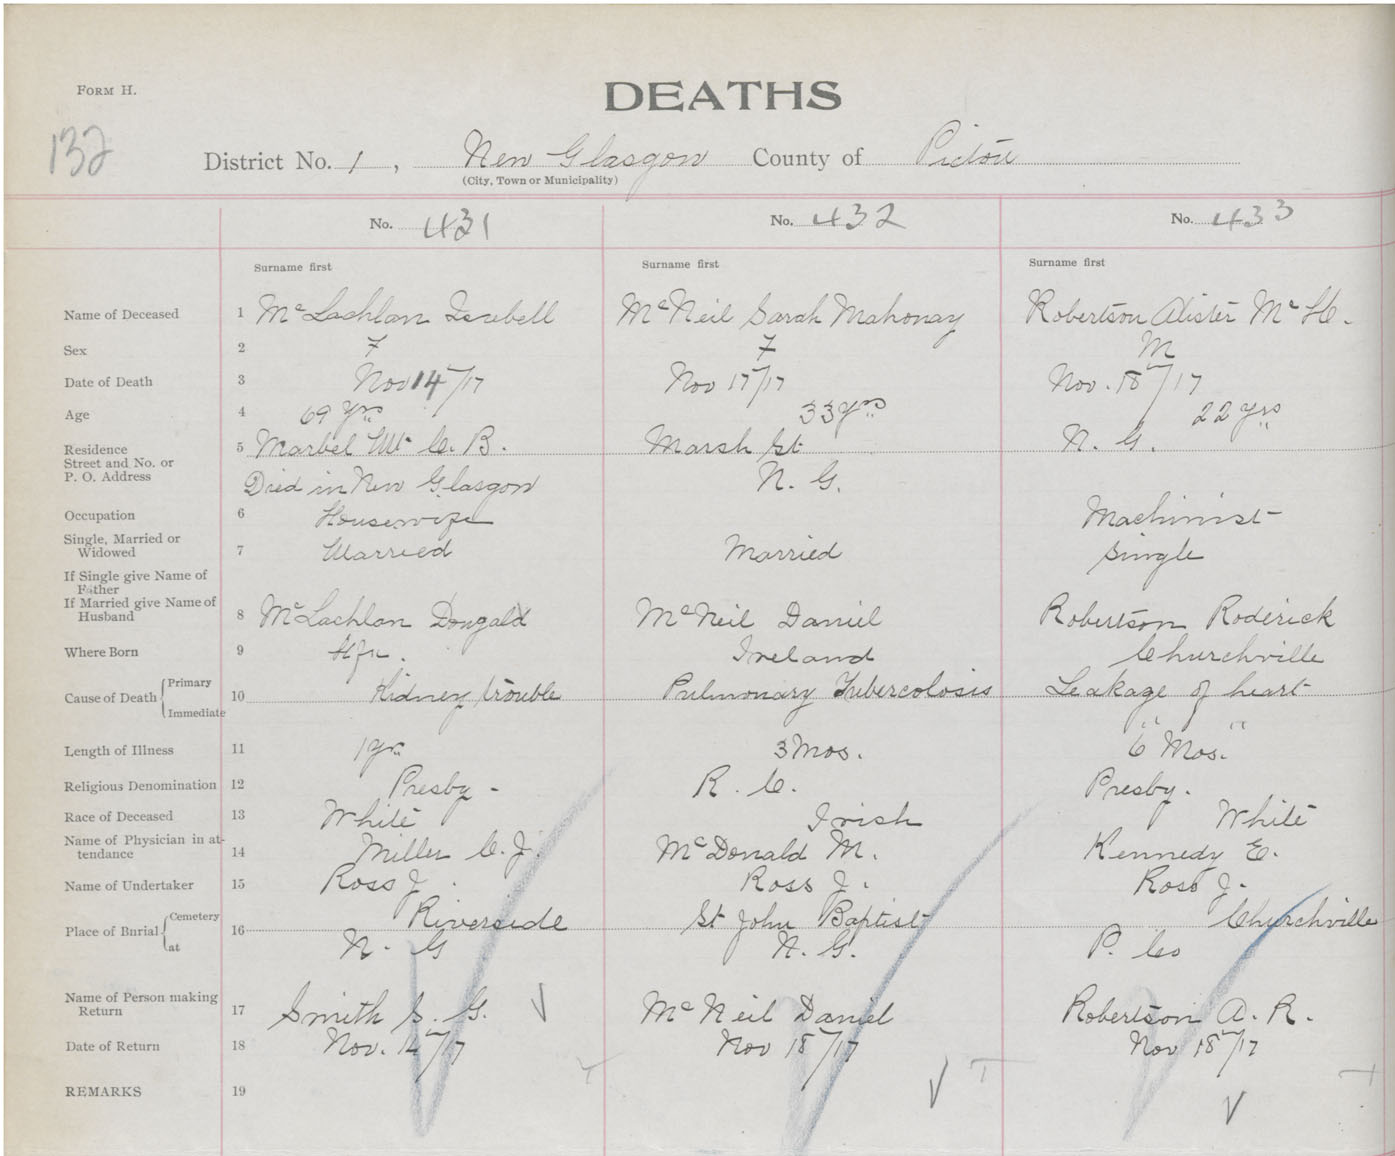 FORM H.
DEATHS
132
District No. 1, New Glasgow County of Pictou
(City, Town or Municipality)
No. 431 No. 432 No. 433
Surname first Surname first Surname first
Name of Deceased 1 McLachlan Isabell McNeil Sarah Mahonay Robertson Alister McH.
Sex 2 F F M
Date of Death 3 Nov 14/17 Nov 17/17 Nov. 18/17
Age 4 69 yrs 33 yrs 22 yrs
Residence 5 Marbel Mt C. B. Marsh St N. G.
Street and No. or
P. O. Address Died in New Glasgow N. G.
Occupation 6 Housewife Machinist
Single, Married or
Widowed 7 Married Married Single
If Single give Name of
Father
If Married give Name of
Husband 8 McLachlan Dougald McNeil Daniel Robertson Roderick
Where Born 9 Ireland Churchville
Cause of Death Primary Immediate 10 Kidney trouble Pulmonary Tubercolosis Leakage of heart
" "
Length of Illness 11 1 yr 3 Mos. 6 Mos.
Religious Denomination 12 Presby. R. C. Presby.
Race of Deceased 13 White Irish White
Name of Physician in at-
tendance 14 Miller C. J. McDonald M. Kennedy E.
Name of Undertaker 15 Ross J. Ross J. Ross J.
Place of Burial Cemetery at 16 Riverside St John Baptist Churchville
N. G N. G. P. Co
Name of Person making
Return 17 Smith S. G. McNeil Daniel Robertson A. R.
Date of Return 18 Nov. 14/17 Nov 18/17 Nov 18/17
REMARKS 19